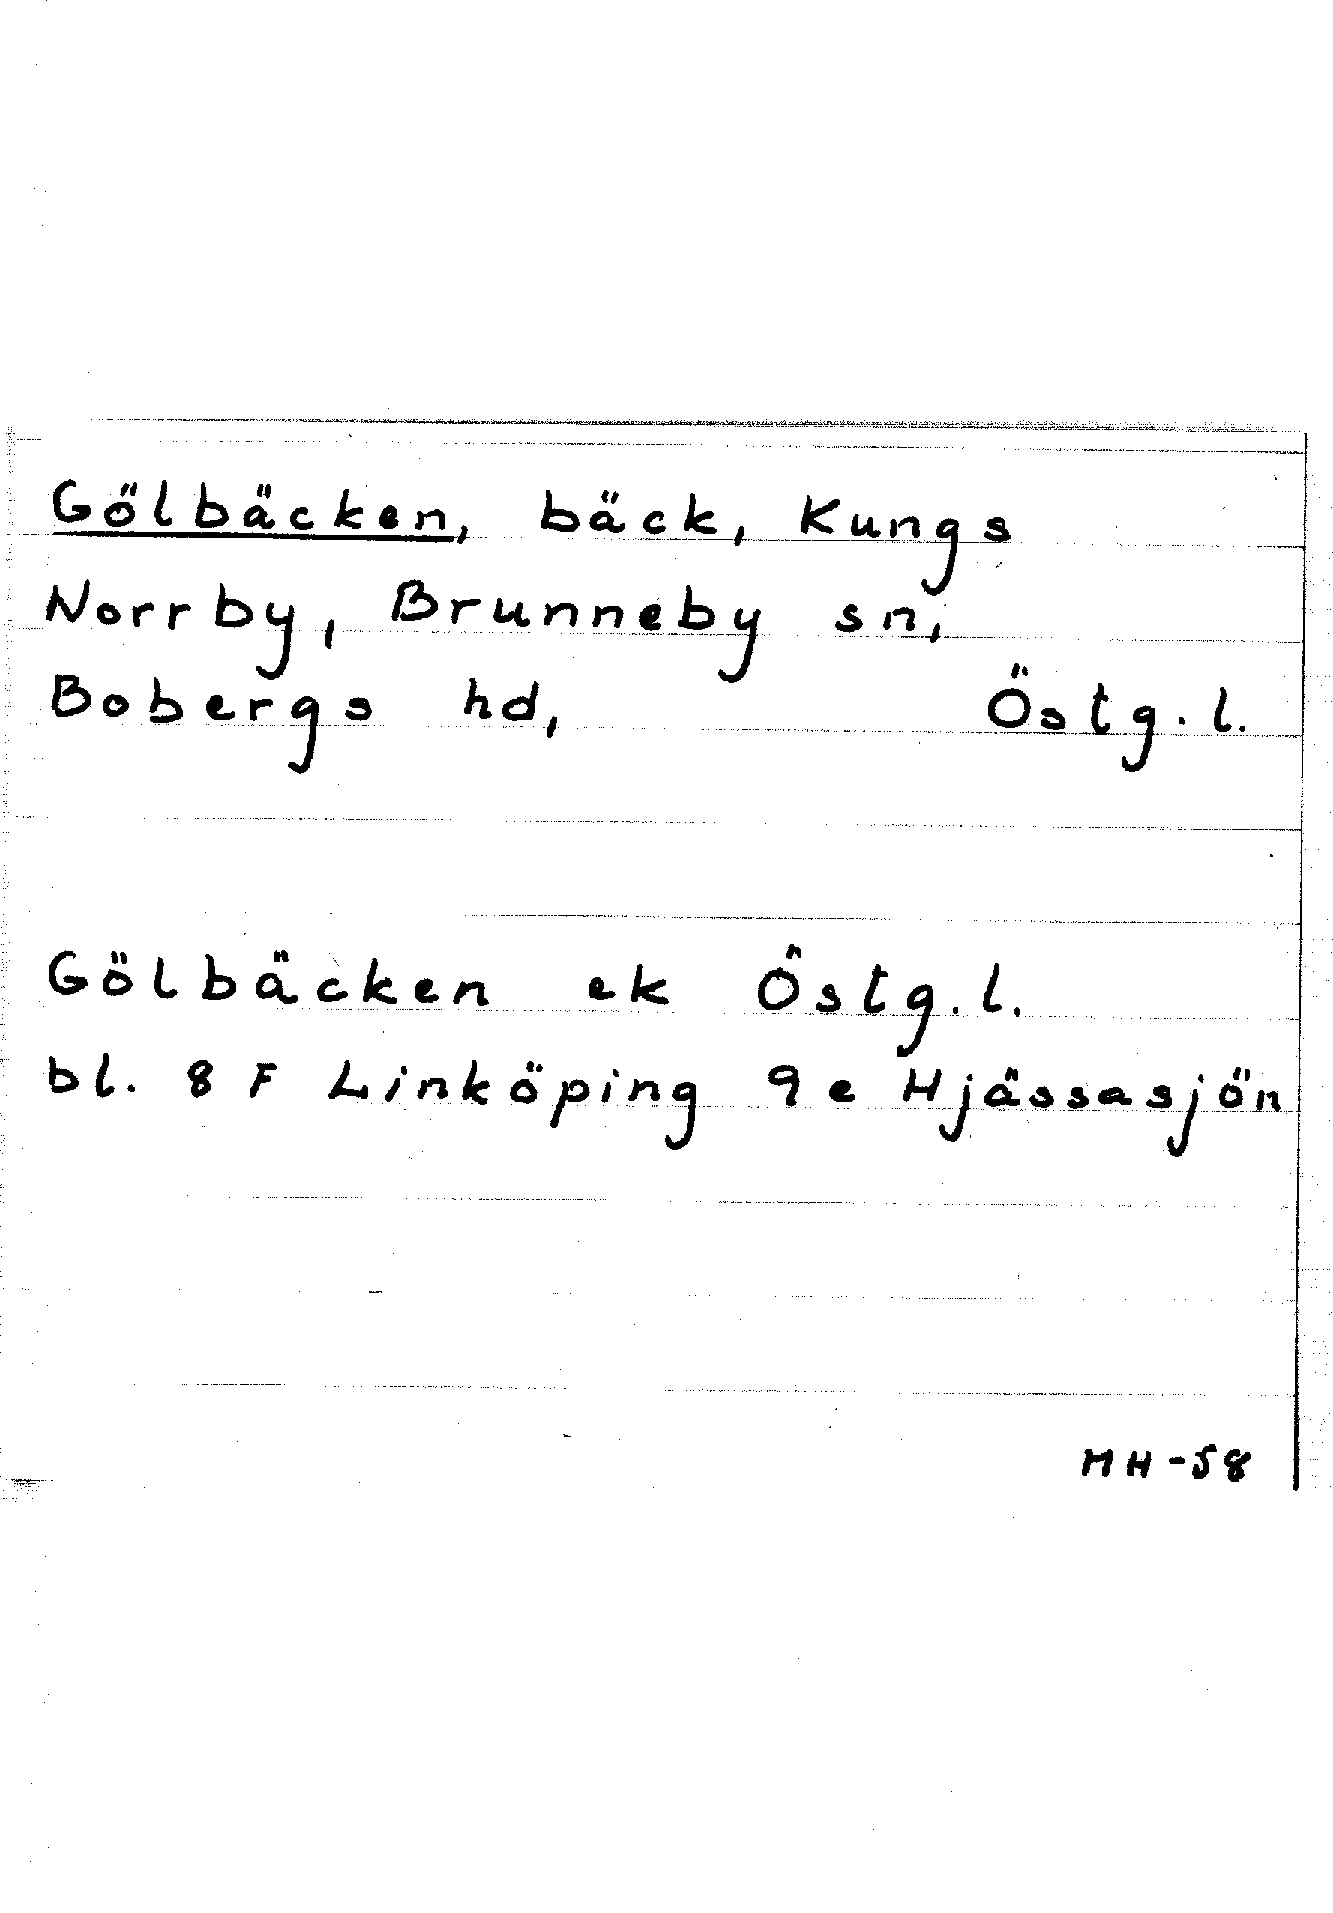 Gölbäcken, bäck, Kungs
Norrby, Brunneby sn,
Bobergs hd, Östg.l.
Gölbäcken ek Östg.l.
bl. 8 F Linköping 9e Hjässasjön
MH-58